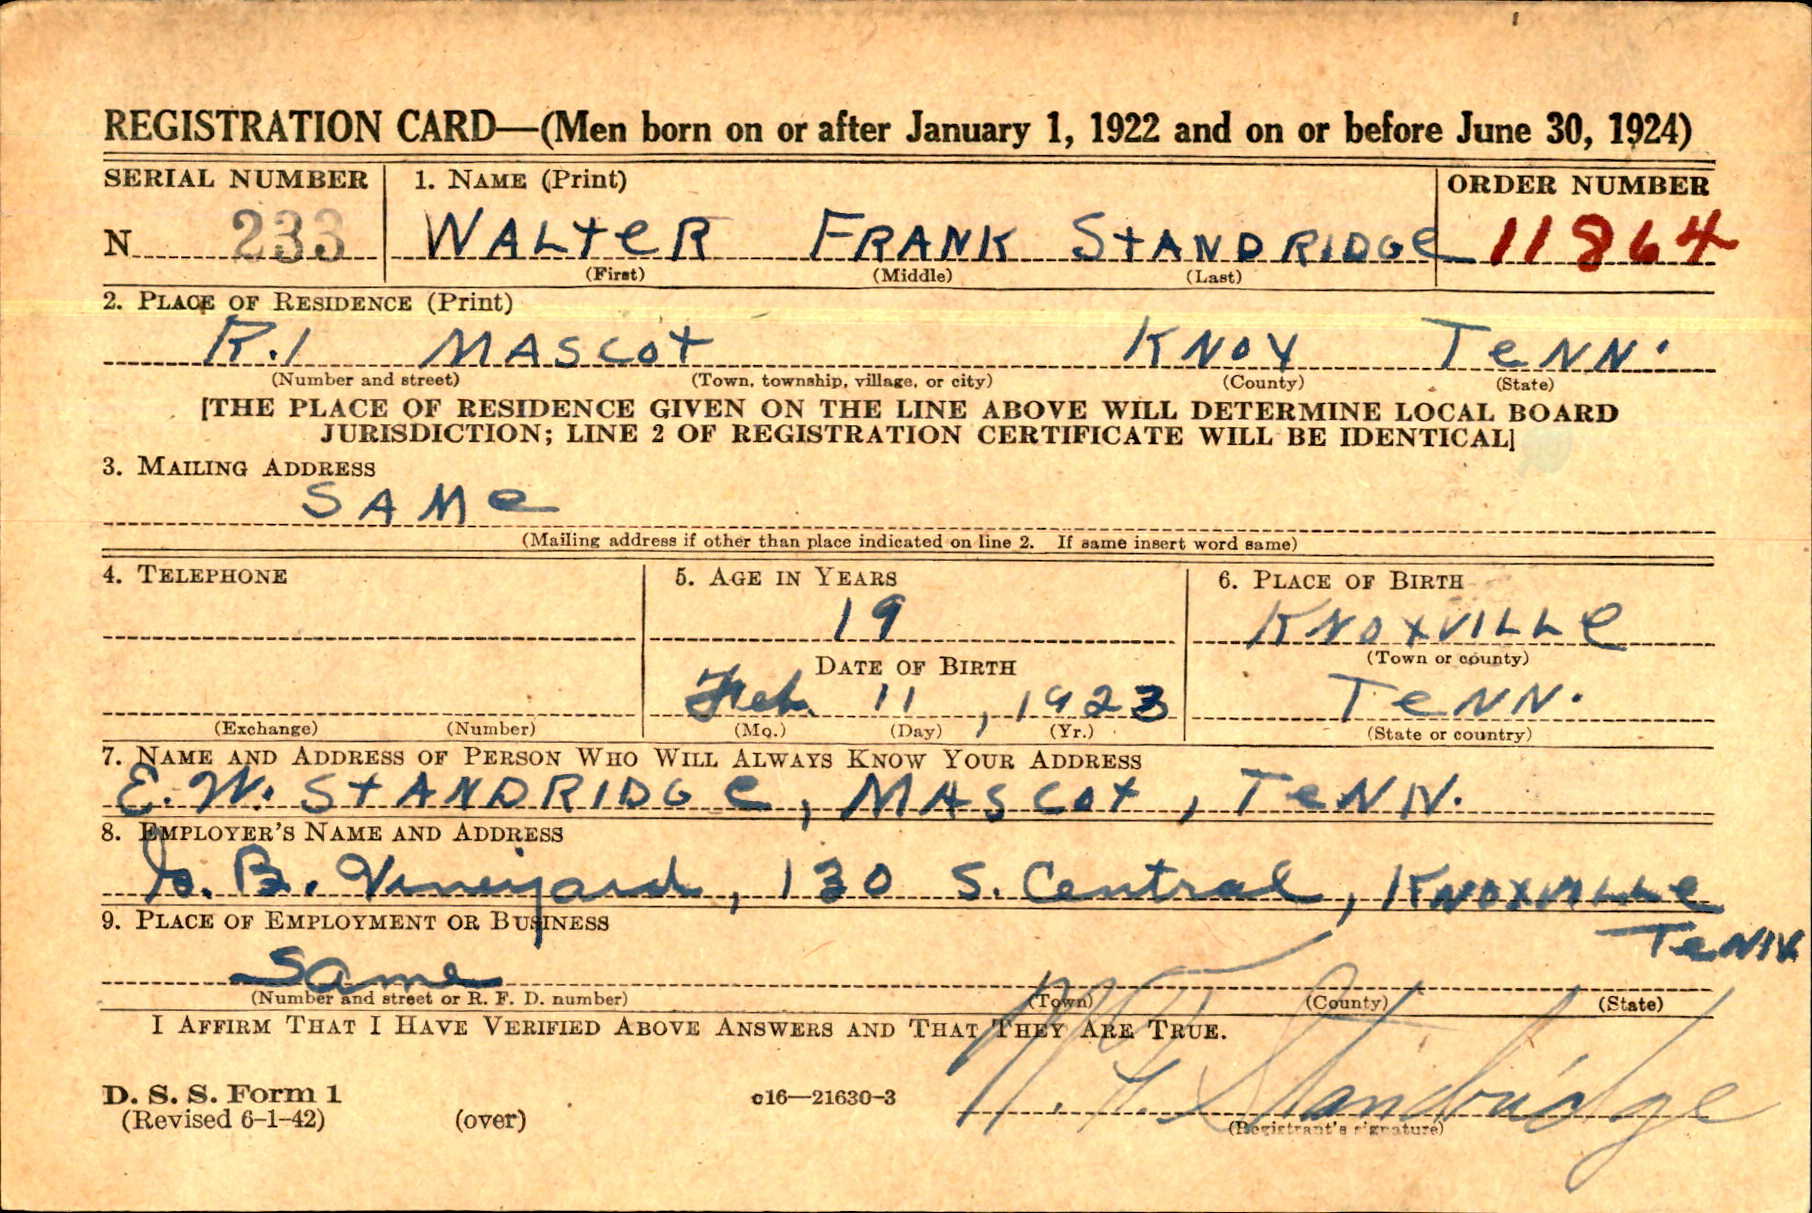 REGISTRATION CARD—(Men born on or after January 1, 1922 and on or before June 30, 1924)
SERIAL NUMBER
1. NAME (Print)
ORDER NUMBER
N 233
WALTER FRANK STANDRIDGE
11864
(First) (Middle) (Last)
2. PLACE OF RESIDENCE (Print)
R.1 MASCOT KNOX TENN.
(Number and street) (Town, township, village, or city) (County) (State)
[THE PLACE OF RESIDENCE GIVEN ON THE LINE ABOVE WILL DETERMINE LOCAL BOARD
JURISDICTION; LINE 2 OF REGISTRATION CERTIFICATE WILL BE IDENTICAL]
3. MAILING ADDRESS
SAME
(Mailing address if other than place indicated on line 2. If same insert word same)
4. TELEPHONE
5. AGE IN YEARS
6. PLACE OF BIRTH
19
KNOXVILLE
DATE OF BIRTH
(Town or county)
Feb. 11, 1923
TENN.
(Exchange) (Number)
(Mo.) (Day) (Yr.)
(State or country)
7. NAME AND ADDRESS OF PERSON WHO WILL ALWAYS KNOW YOUR ADDRESS
E. W. STANDRIDGE, MASCOT, TENN.
8. EMPLOYER'S NAME AND ADDRESS
B. Vineyard, 130 S. Central, KNOXVILLE
TENN.
9. PLACE OF EMPLOYMENT OR BUSINESS
Same
(Number and street or R. F. D. number) (Town) (County) (State)
I AFFIRM THAT I HAVE VERIFIED ABOVE ANSWERS AND THAT THEY ARE TRUE.
D. S. S. Form 1
(Revised 6-1-42) (over)
c16—21630-3
W. F. Standridge
(Registrant's signature)